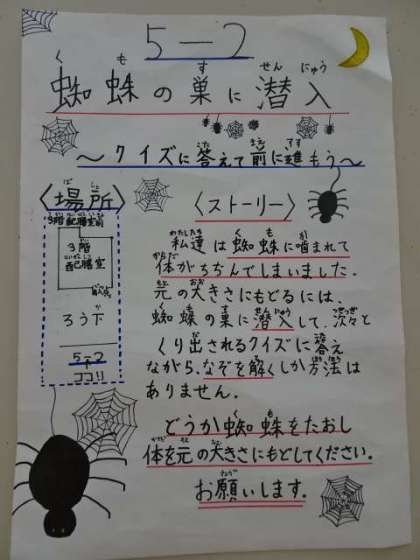 5-2
蜘蛛の巣に潜入
〜クイズに答えて前に進もう〜
〈場所〉
3階配膳室前
3階
配膳室
ろう下
5-2
ココ!!
〈ストーリー〉
私達は蜘蛛に噛まれて
体がちぢんでしまいました.
元の大きさにもどるには、
蜘蛛の巣に潜入して、次々と
くり出されるクイズに答え
ながら、なぞを解くしか方法は
ありません.
どうか蜘蛛をたおし
体を元の大きさにもどしてください.
お願いします.